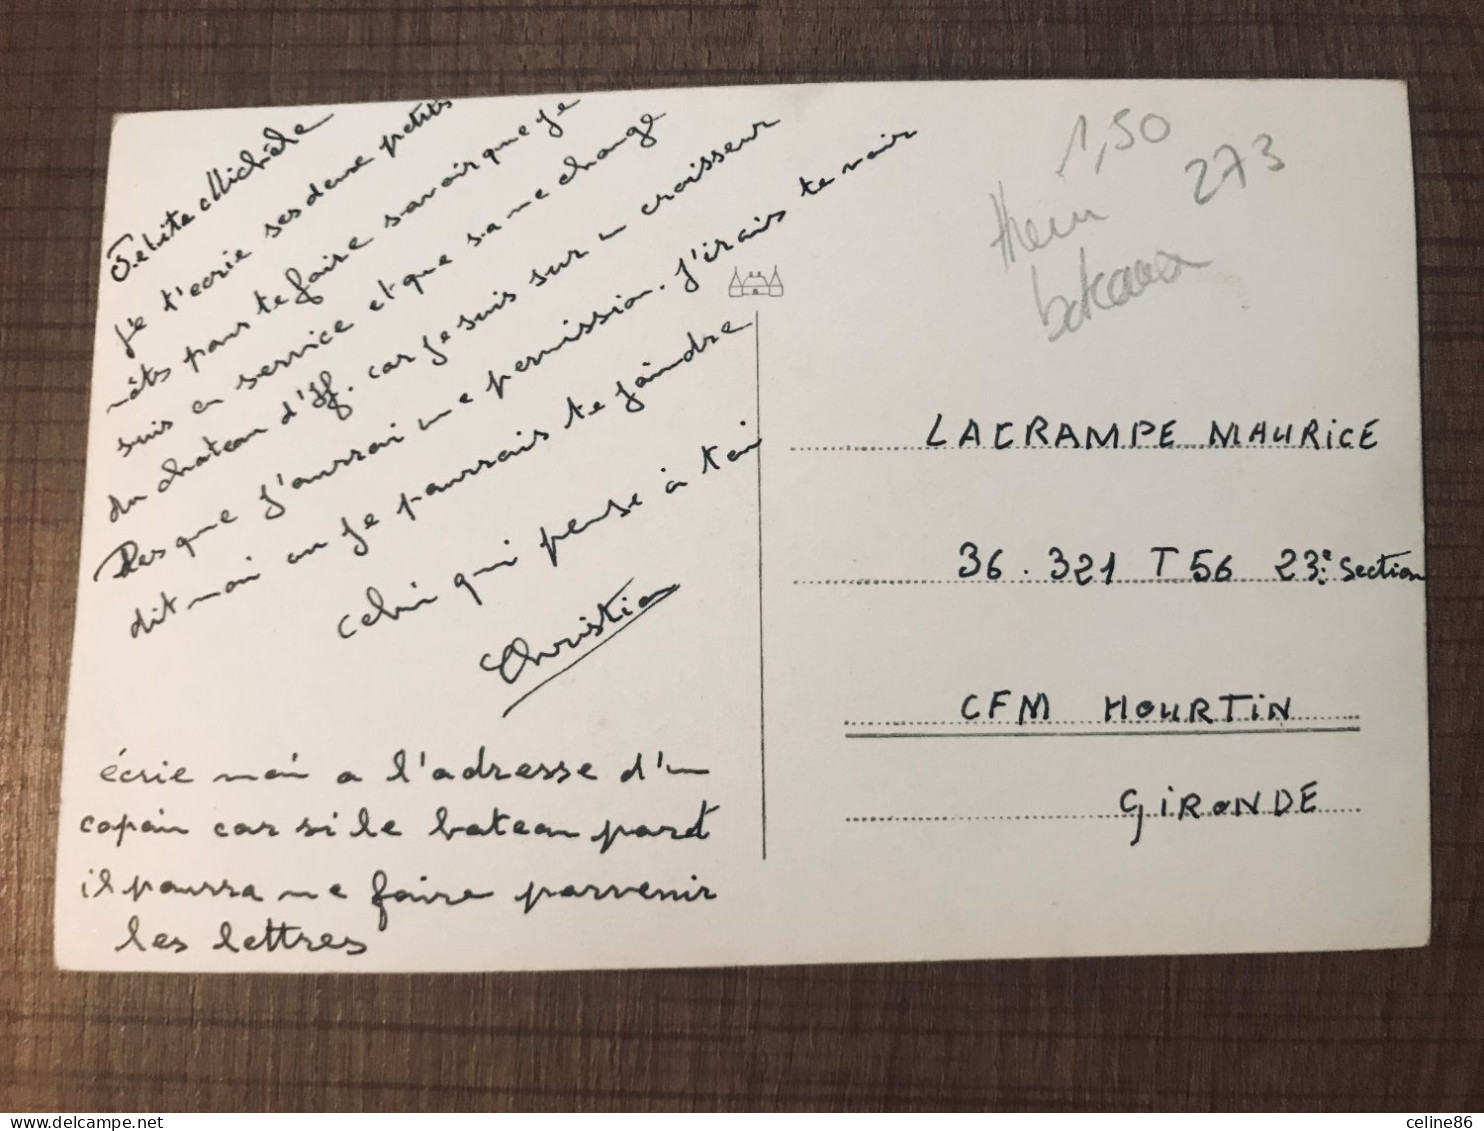 Petite Michèle
Je t'ecrie ses deux petits
môts pour te faire savoir que je
suis en service et que sa me change
du chateau d'If. car je suis sur un croisseur
Des que j'aurrai une permission. J'irais te voir
dit moi ou je pourrais te joindre
celui qui pense à toi
Christian
écrie moi a l'adresse d'un
copain car si le bateau part
il pourra me faire parvenir
les lettres
1,50
273
bateaux
LACRAMPE MAURICE
36.321 T56 23e Section
CFM HOURTIN
GIRONDE
celine86